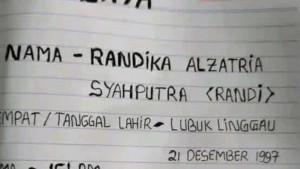 NAMA - RANDIKA ALZATRIA
SYAHPUTRA <RANDI>
EMPAT / TANGGAL LAHIR - LUBUK LINGGAU
21 DESEMBER 1997